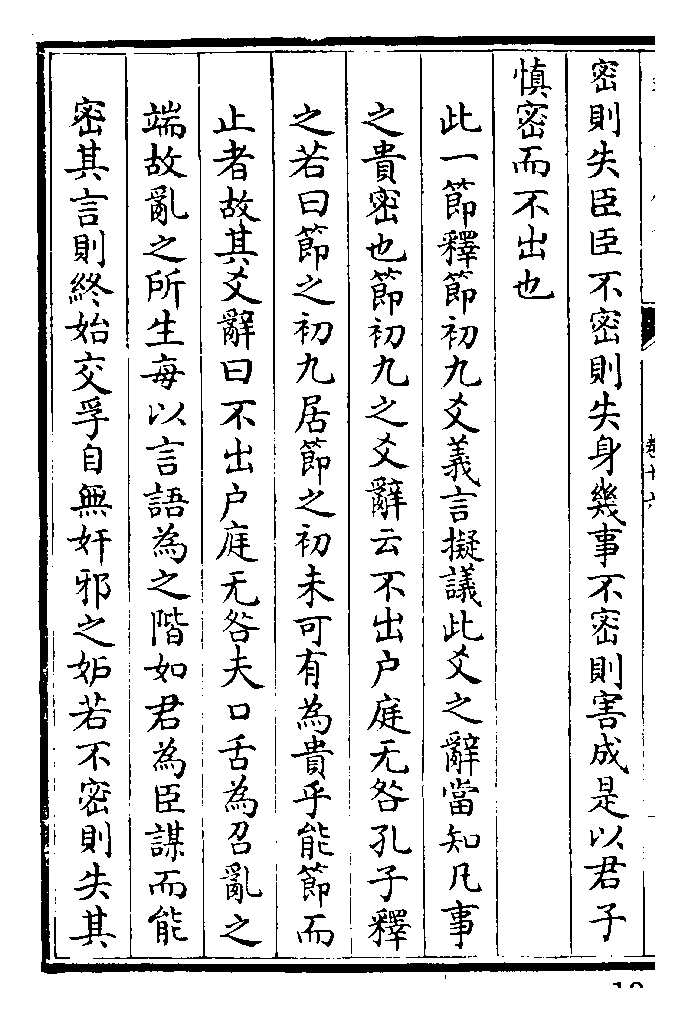 密則失臣臣不密則失身幾事不密則害成是以君子
慎密而不出也
此一節釋節初九爻義言擬議此爻之辭當知凡事
之貴密也節初九之爻辭云不出户庭无咎孔子釋
之若曰節之初九居節之初未可有為貴乎能節而
止者故其爻辭曰不出户庭无咎夫口舌為召亂之
端故亂之所生每以言語為之階如君為臣謀而能
密其言則終始交孚自無奸邪之妬若不密則失其
卷十六